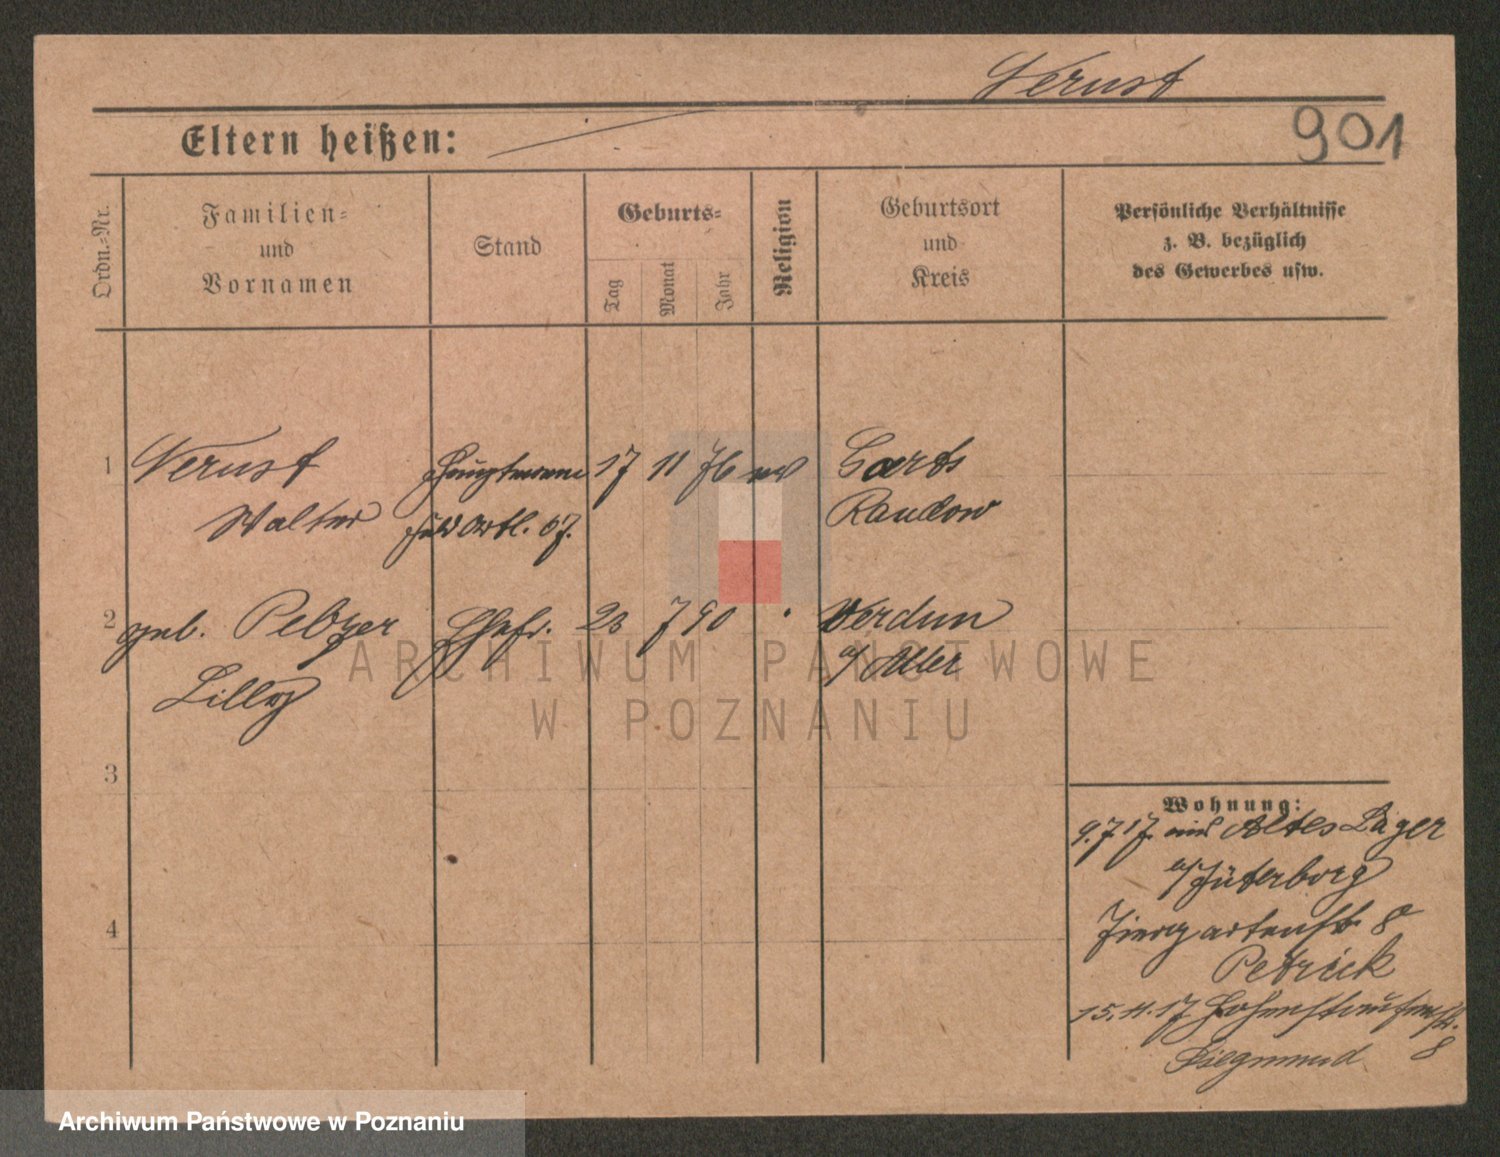 Vernst
901
Eltern heißen:
Ordn.-Nr.
Familien-
und
Vornamen
Stand
Geburts-
Tag
Monat
Jahr
Religion
Geburtsort
und
Kreis
Persönliche Verhältnisse
z. B. bezüglich
des Gewerbes usw.
1 Vernst Hauptmann 17 11 76 ev Garts
Walter Feld Artl. 67. Randow
2 geb. Pelzer Ehefr. 23 7 90 Verdun
Lilly a/ Aller
3
4
Wohnung:
9.7.17. Altes Lager
a/ Jüterborg
Tiergartenstr 8
Petrick
15.11.17 Hohenstaufenstr.
8
Siegmund
ARCHIWUM PAŃSTWOWE
W POZNANIU
Archiwum Państwowe w Poznaniu